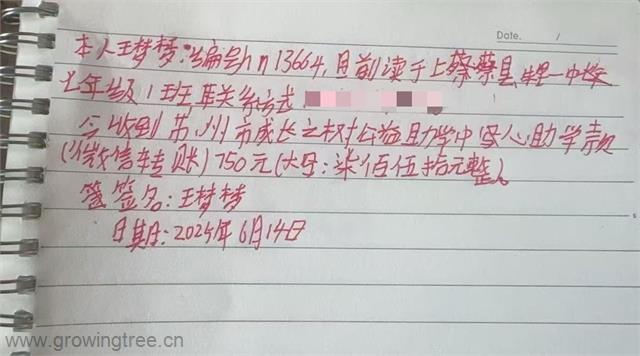 Date. /
本人王梦梦:编号hn13664,目前读于上蔡蔡县 一中校
七年级1班,联系方式
今收到苏州市成长之树公益助学中心爱心助学款
(微信转账)750元(大写:柒佰伍拾元整)。
签名:王梦梦
日期:2024年6月14日
www.growingtree.cn